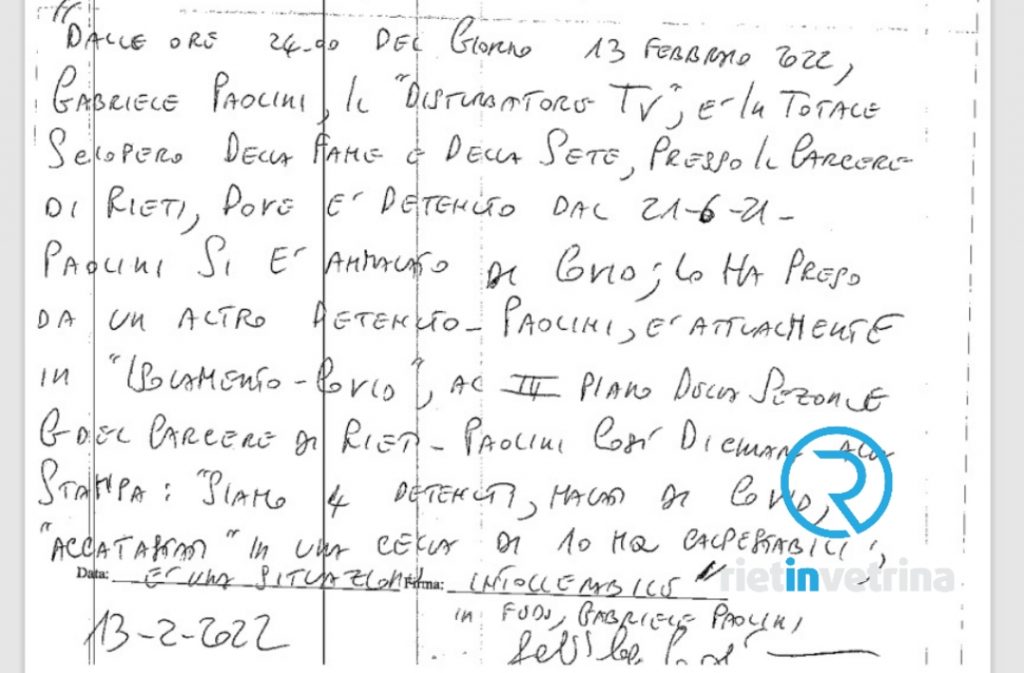 "DALLE ORE 24.00 DEL GIORNO 13 FEBBRAIO 2022,
GABRIELE PAOLINI, IL "DISTURBATORE TV", E' IN TOTALE
SCIOPERO DELLA FAME E DELLA SETE, PRESSO IL CARCERE
DI RIETI, DOVE E' DETENUTO DAL 21-6-21-
PAOLINI SI E' AMMALATO DI COVID; LO HA PRESO
DA UN ALTRO DETENUTO- PAOLINI, E' ATTUALMENTE
IN "ISOLAMENTO-COVID", AL III PIANO DELLA SEZIONE
G DEL CARCERE DI RIETI- PAOLINI COSI' DICHIARA ALLA
STAMPA: "SIAMO 4 DETENUTI, MALATI DI COVID,
"ACCATASTATI" IN UNA CELLA DI 10 MQ CALPESTABILI,
Data: E' UNA SITUAZIONE Firma: INTOLLERABILE"
rietinvetrina
13-2-2022
IN FEDE, GABRIELE PAOLINI